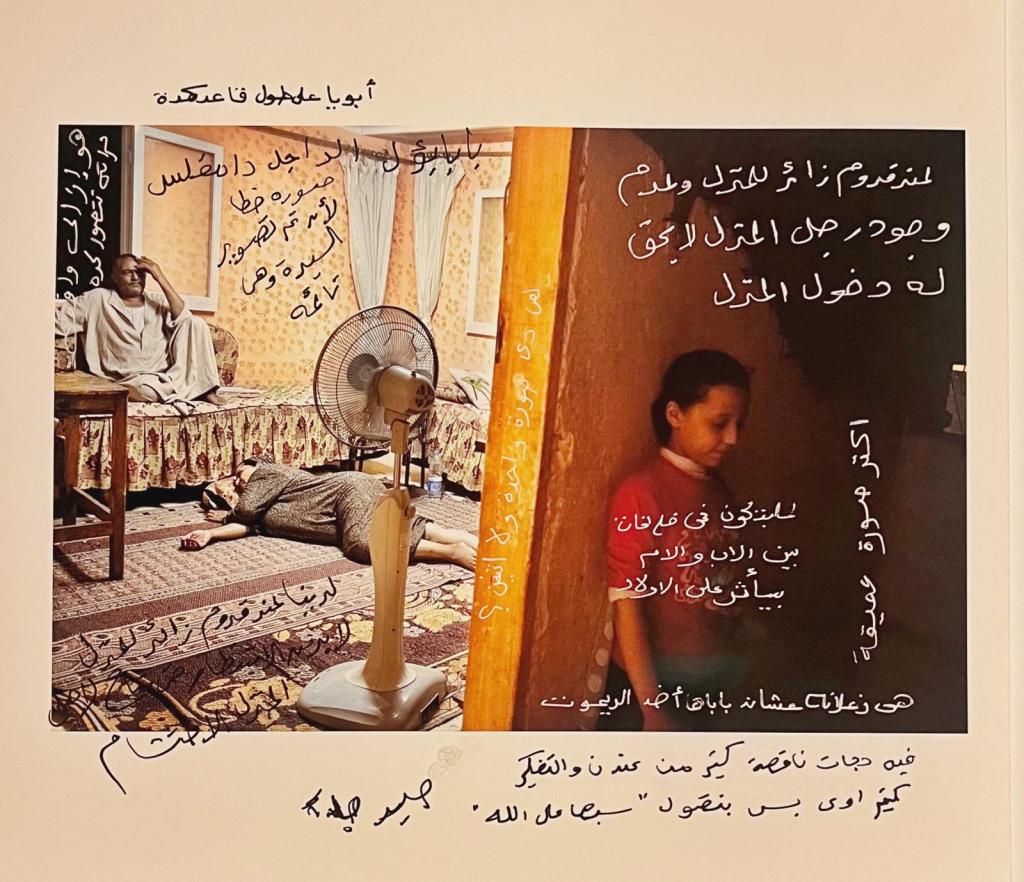 أبويا على طول قاعد كدة
بابا بيؤل الراجل دا مفلس
صوره خطأ
لأنه تم تصوير
السيدة وهى
نائمه
عند قدوم زائر للمنزل وعدم
وجود رجل المنزل لا يحق
له دخول المنزل
هى دى صورة واحدة ولا اتنين ؟
اكتر صورة عميقة
لما بتكون فى خلافات
بين الاب والام
بيأثر على الاولاد
هى زعلانه عشان باباها أخد الريموت
لدينا عند قدوم زائر للمنزل
المنزل الاحتشام
فيه حجات ناقصة كتير من عندنا والتفكير
كتير اوى بس بنقول "سبحان الله"